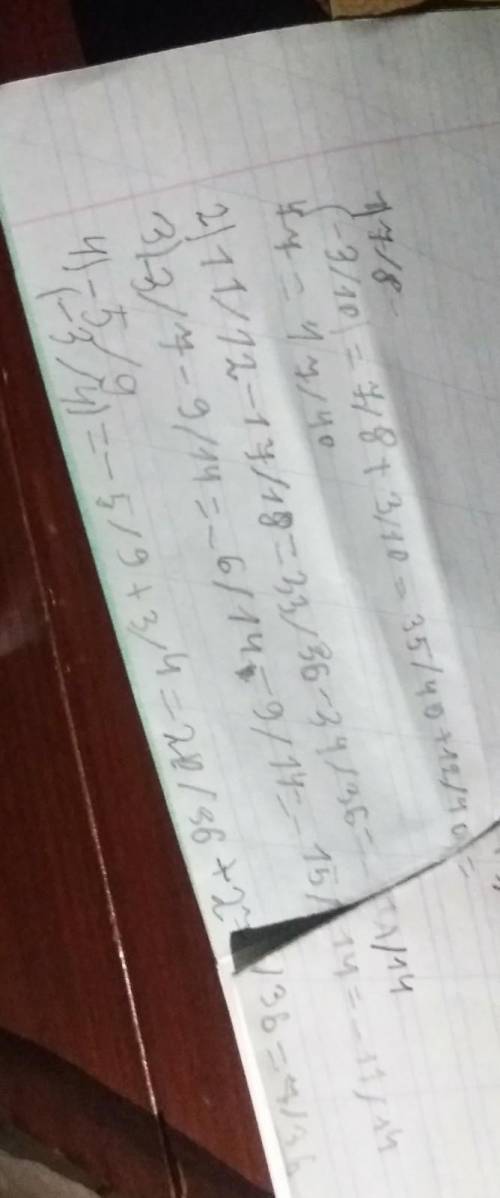 1) 7/8 -
(-3/10) = 7/8 + 3/10 = 35/40 + 12/40 =
47 = 1 7/40
2) 11/12 - 17/18 = 33/36 - 34/36 =
3) -3/7 - 9/14 = -6/14 - 9/14 = - 15/14 = -11/14
4) -5/9
(-3/4) = -5/9 + 3/4 = -20/36 + 2 /36 = 7/36